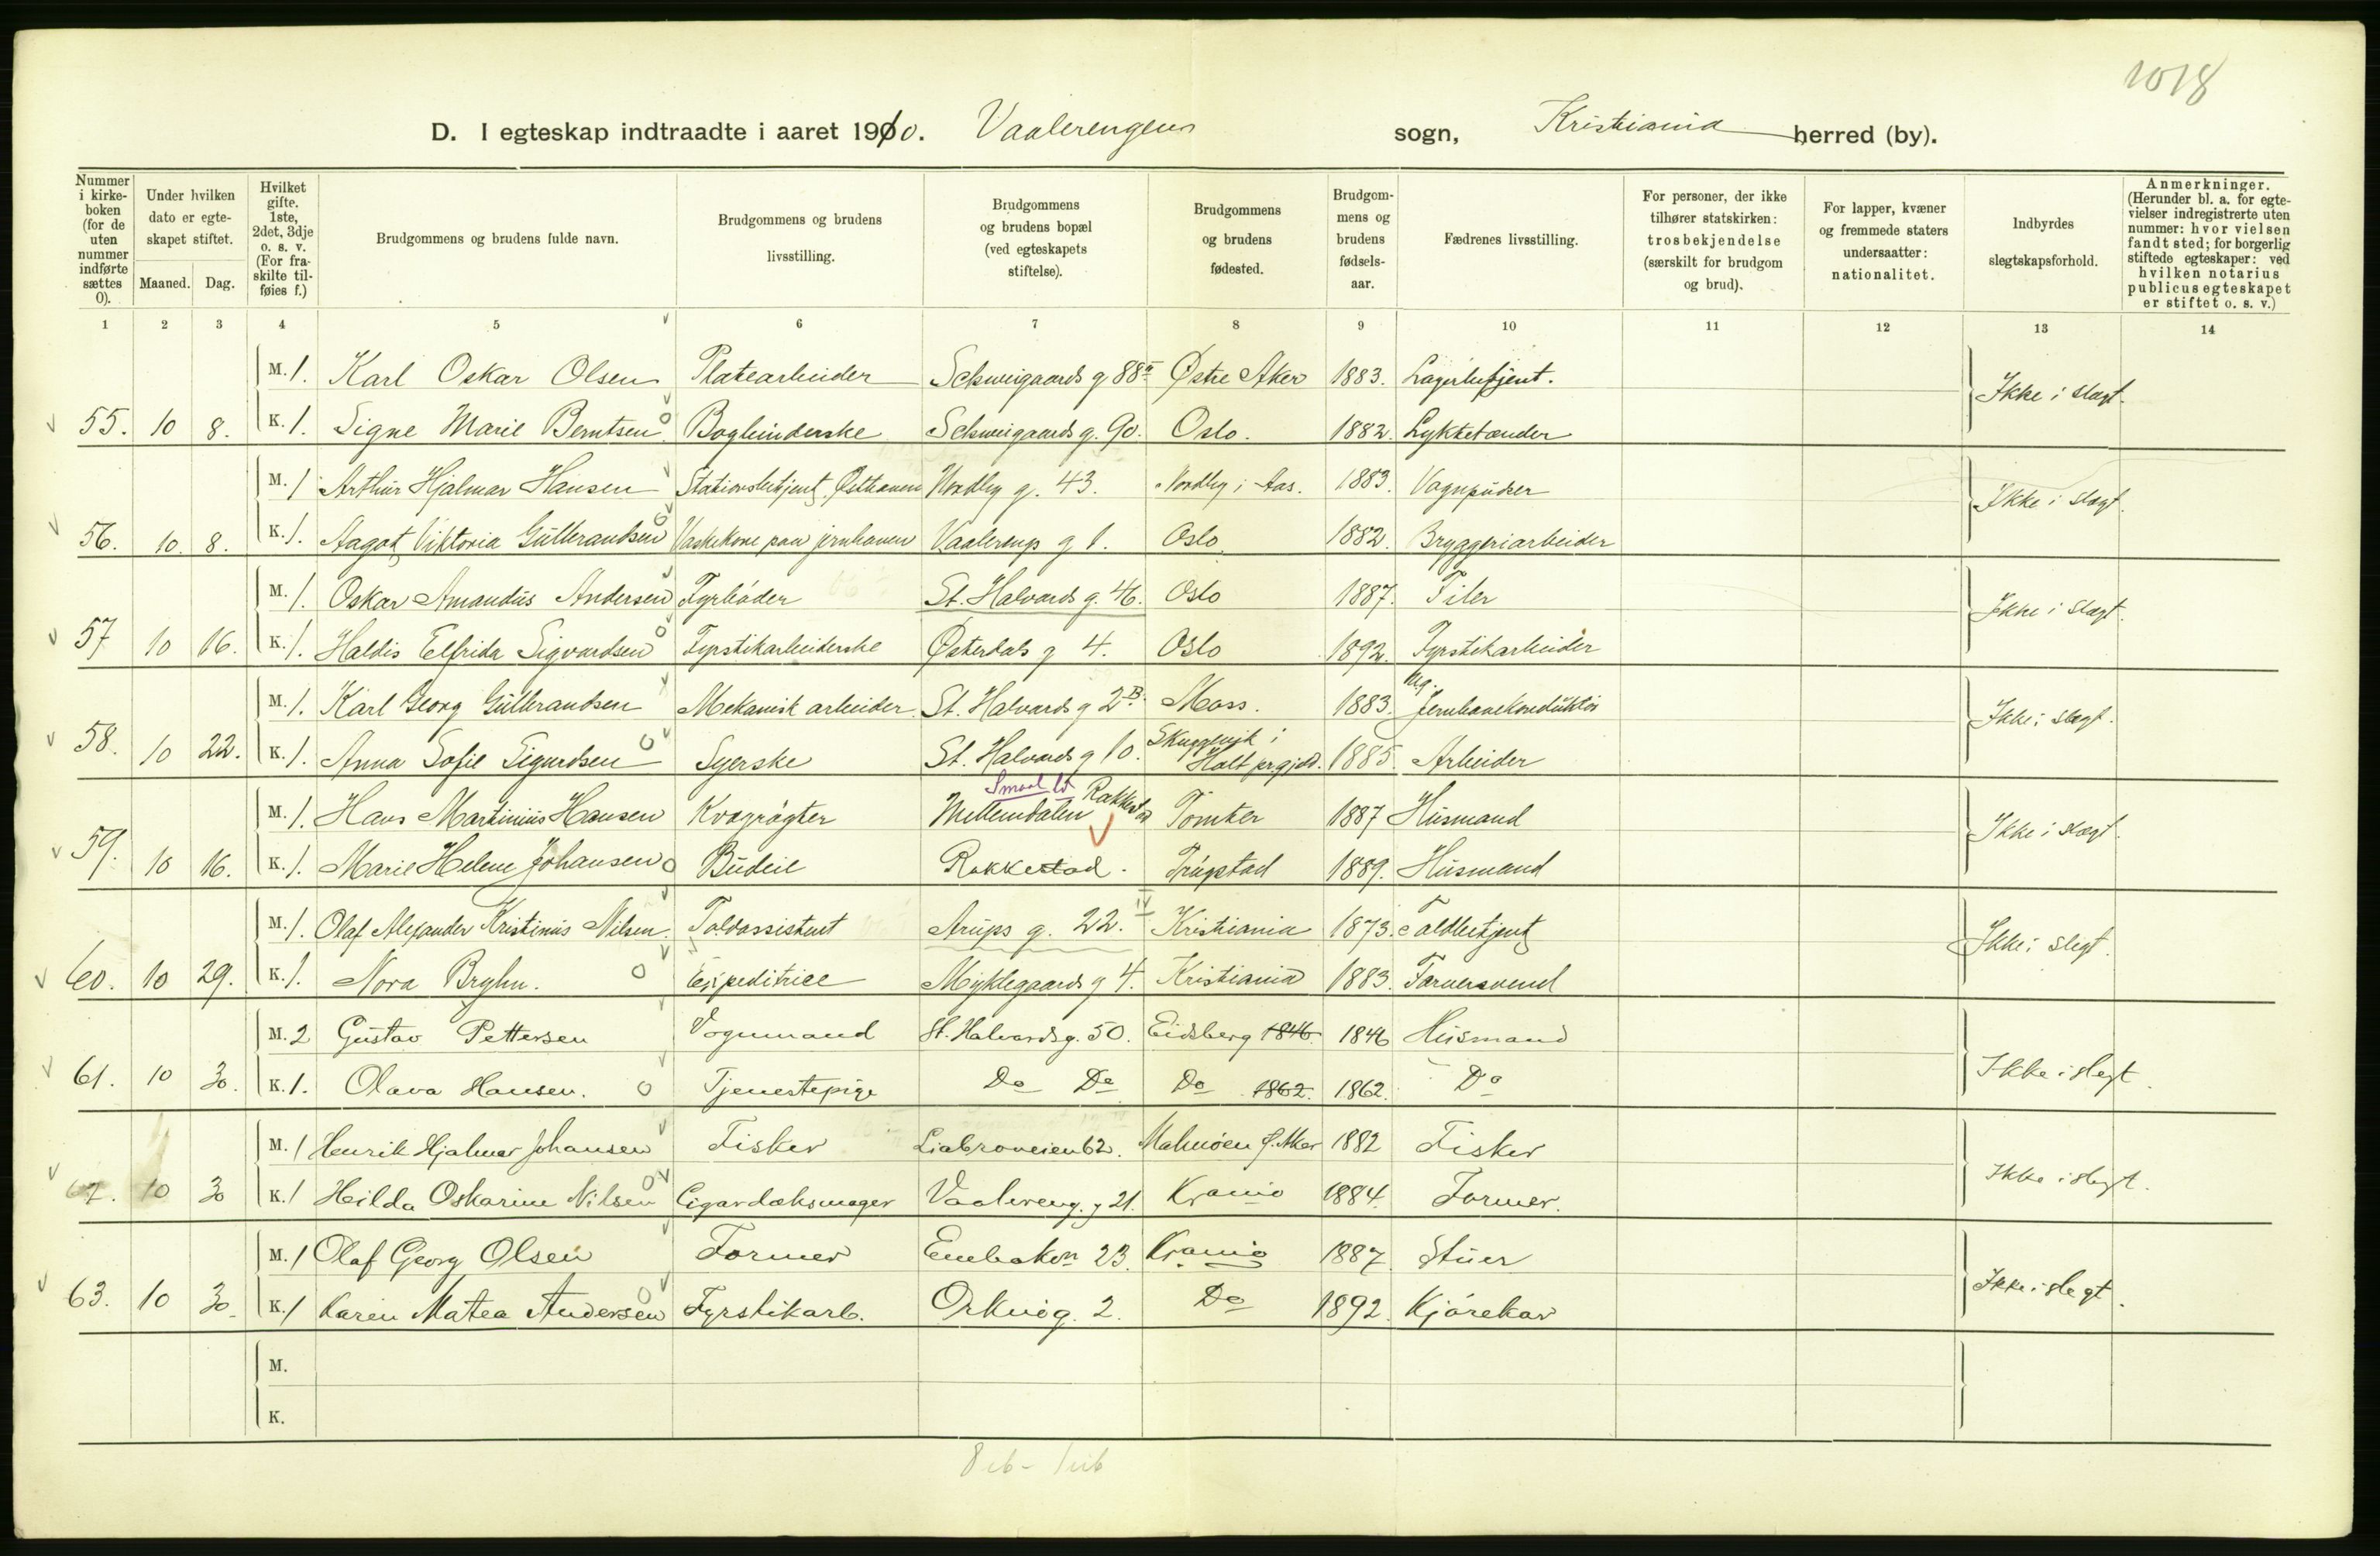 1018
D. I egteskap indtraadte i aaret 1910. Vaalerengens sogn, Kristiania herred (by).
Nummer i kirkeboken (for de uten nummer indførte sættes 0).
Under hvilken dato er egteskapet stiftet.
Maaned. Dag.
Hvilket gifte. 1ste, 2det, 3dje o. s. v. (For fraskilte tilføies f.)
Brudgommens og brudens fulde navn.
Brudgommens og brudens livsstilling.
Brudgommens og brudens bopæl (ved egteskapets stiftelse).
Brudgommens og brudens fødested.
Brudgommens og brudens fødselsaar.
Fædrenes livsstilling.
For personer, der ikke tilhører statskirken: trosbekjendelse (særskilt for brudgom og brud).
For lapper, kvæner og fremmede staters undersaatter: nationalitet.
Indbyrdes slegtskapsforhold.
Anmerkninger. (Herunder bl. a. for egtevielser indregistrerte uten nummer: hvor vielsen fandt sted; for borgerlig stiftede egteskaper: ved hvilken notarius publicus egteskapet er stiftet o. s. v.)
1 2 3 4 5 6 7 8 9 10 11 12 13 14
M. 1. Karl Oskar Olsen Platearbeider Schweigaards g 88a Østre Aker 1883. Lagerbetjent.
55. 10 8. K. 1. Signe Marie Berntsen Bogbinderske Schweigaards g. 90. Oslo. 1882. Lyktetænder Ikke i slægt.
M. 1 Arthur Hjalmar Hansen Stationsbetjent Østbanen Nordby g. 43. Nordby i Aas. 1883. Vognpudser
56. 10. 8. K. 1. Aagot Viktoria Gulbrandsen Vaskekone paa jernbanen Vaalereng g 1. Oslo. 1882. Bryggeriarbeider Ikke i slægt.
M. 1. Oskar Amandus Andersen Fyrbøder St. Halvards g. 46. Oslo 1887. Filer
57 10 16. K. 1. Haldis Elfrida Sigvardsen Fyrstikarbeiderske Østerdals g 4. Oslo 1892. Fyrstikarbeider Ikke i slægt.
M. 1. Karl Georg Gulbrandsen Mekanisk arbeider St. Halvards g 2B. Moss. 1883. Jernbanekonduktør
58. 10 22. K. 1. Anna Sofie Sigurdsen Syerske St. Halvards g 10. Skuggevik i Holt prgjeld. 1885. Arbeider Ikke i slægt.
M. 1. Hans Martinius Hansen Kvægrøgter Mellemdalen Rakkestad Tomter 1887 Husmand
59. 10 16. K. 1. Marie Helene Johansen Budeie Rakkestad. Trøgstad 1889. Husmand Ikke i slægt.
M. 1. Olaf Alexander Kristinius Nilsen. Toldassistent Arups g. 22. IV Kristiania 1873. Toldbetjent
60. 10 29. K. 1. Nora Bryhn. Expeditrice Myklegaards g 4. Kristiania 1883. Farversvend Ikke i slegt.
M. 2 Gustav Pettersen Vognmand St. Halvards g. 50. Eidsberg 1846 1846 Husmand
61. 10 30. K. 1. Olava Hansen. Tjenestepige Do Do Do 1862. 1862. Do Ikke i slegt.
M. 1 Henrik Hjalmar Johansen Fisker Liabroveien 62. Malmøen Ø. Aker 1882 Fisker
62. 10 30 K. 1 Hilda Oskarine Nilsen Cigardæksmager Vaalereng. g 21. Krania 1884. Former. Ikke i slegt.
M. 1 Olaf Georg Olsen Former Enebakvn 23. Krania 1887. Stuer
63. 10 30. K. 1 Karen Matea Andersen Fyrstikarb. Orknøg. 2. Do 1892. Kjørekar Ikke i slegt.
M.
K.